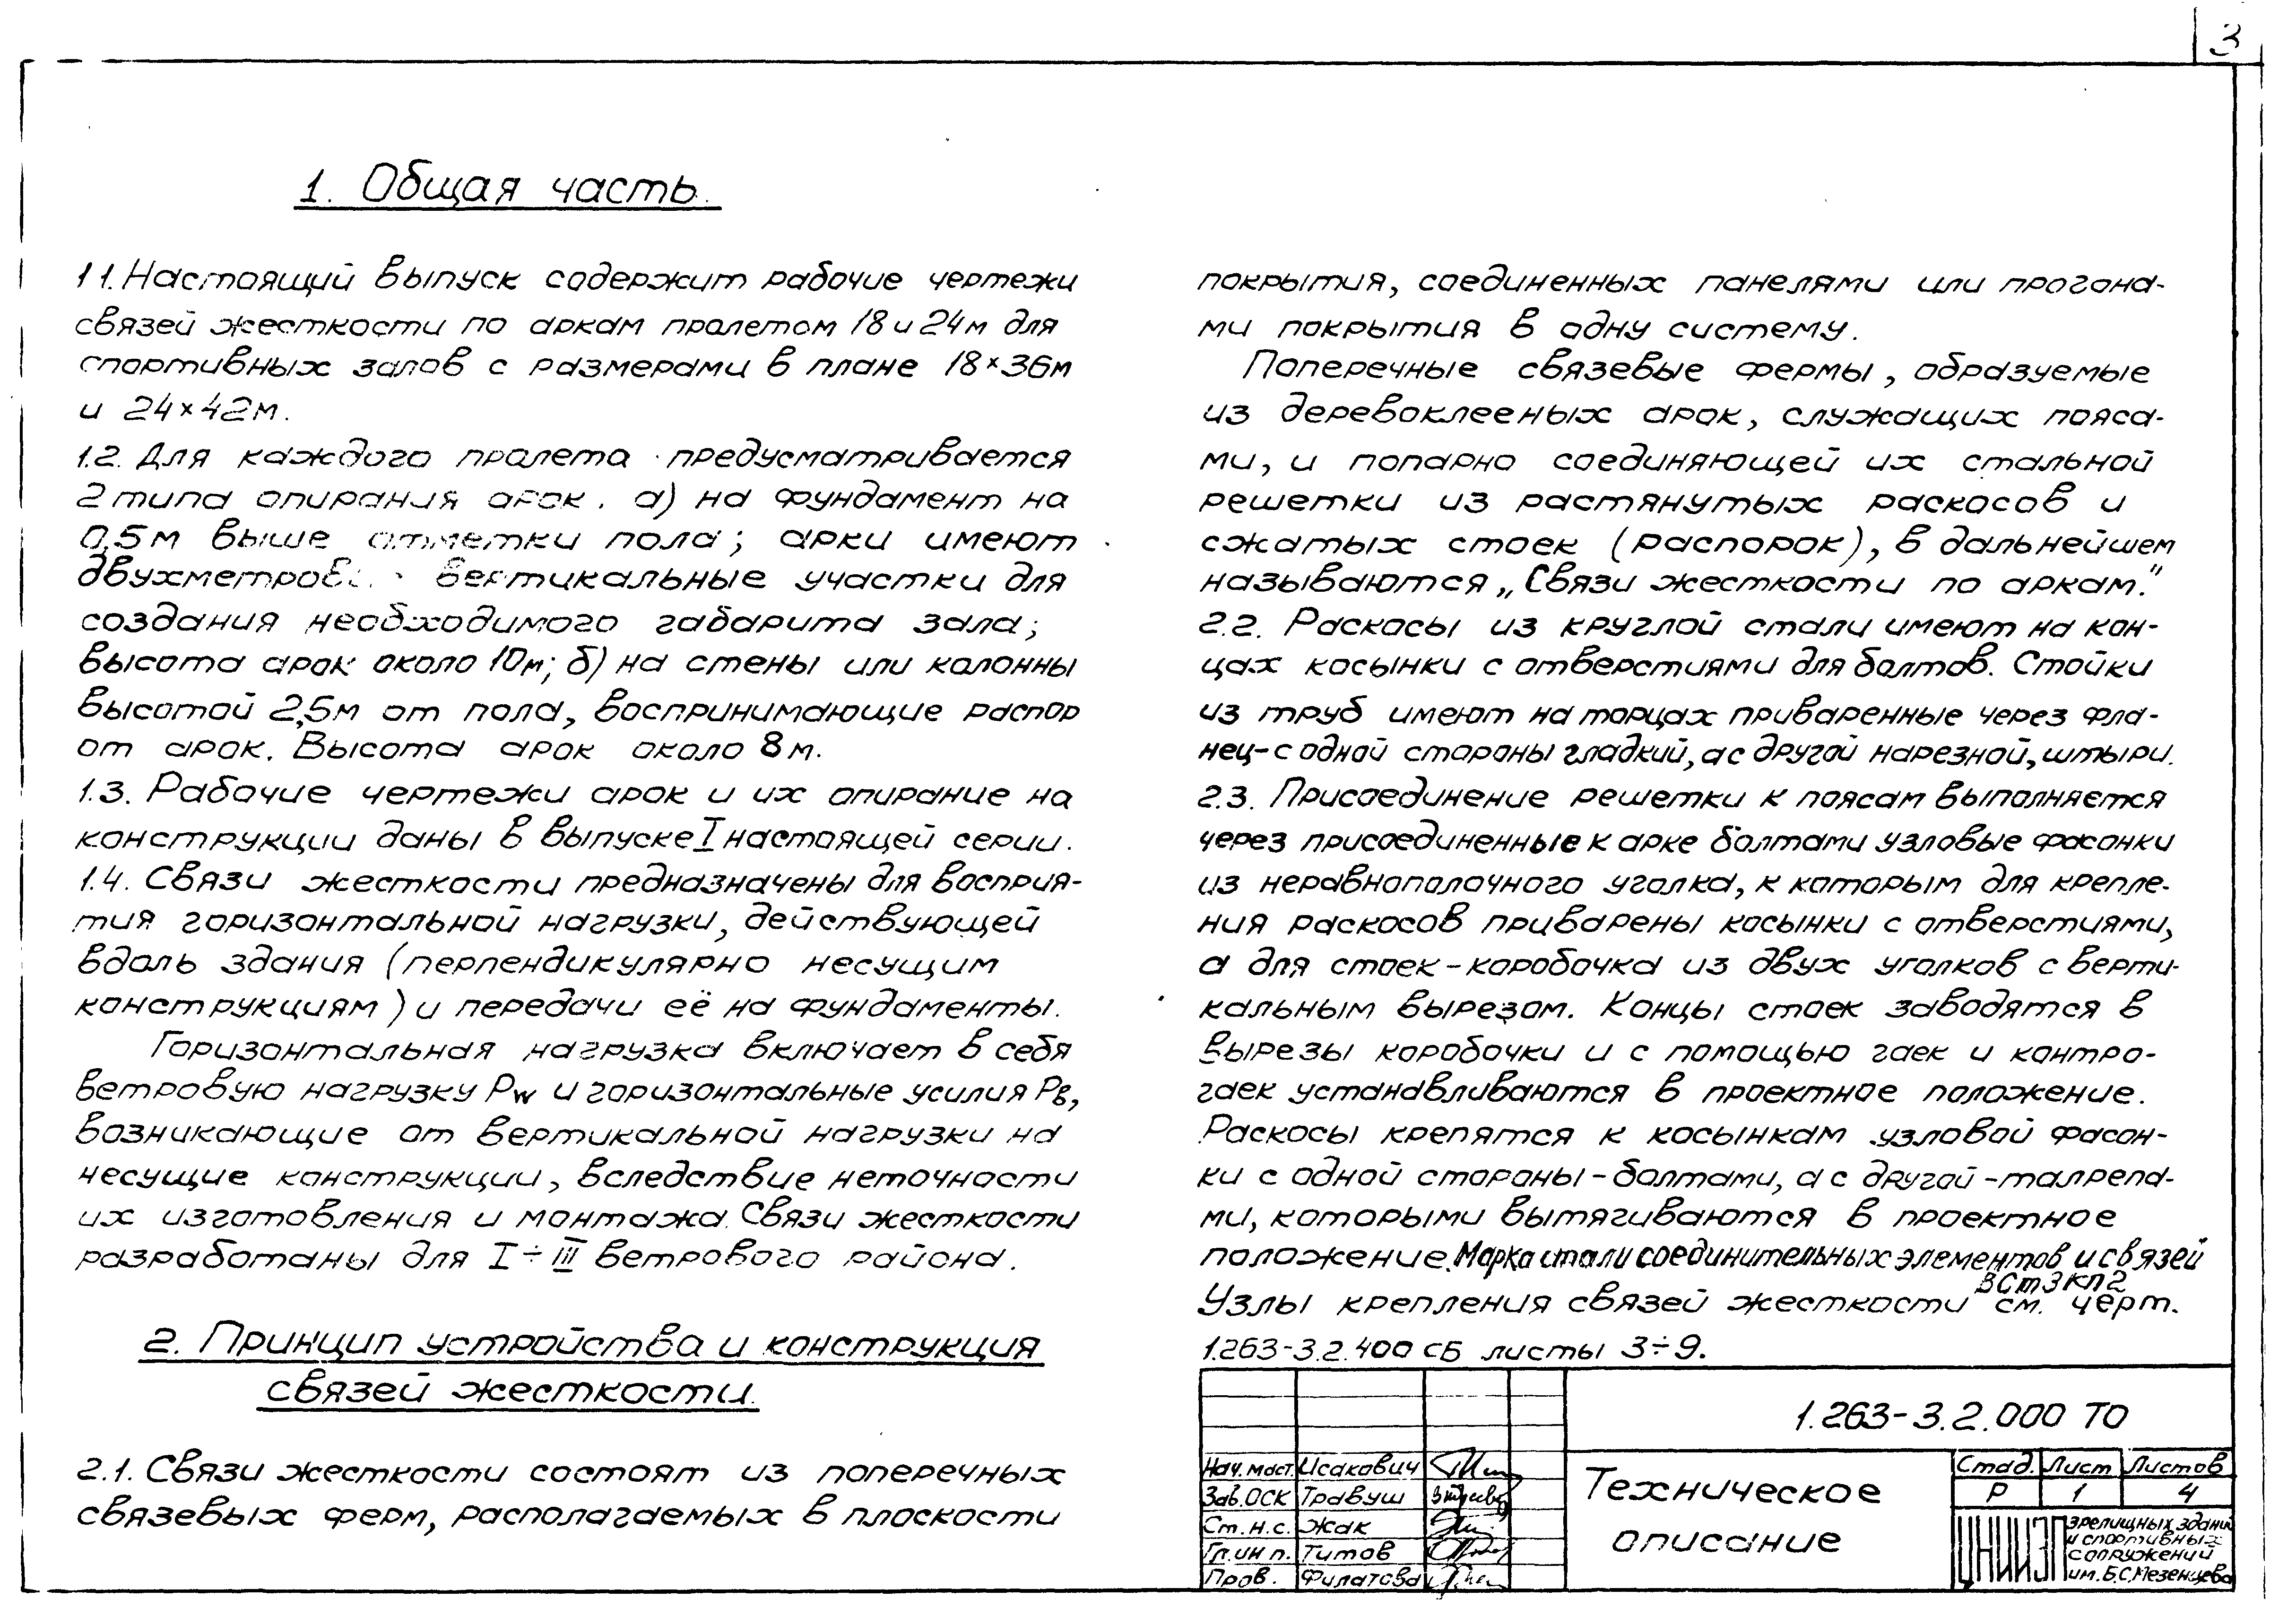 3
1. Общая часть.
1.1. Настоящий выпуск содержит рабочие чертежи
связей жесткости по аркам пролетом 18 и 24м для
спортивных залов с размерами в плане 18×36м
и 24×42м.
1.2. Для каждого пролета предусматривается
2 типа опирания арок. а) на фундамент на
0,5м выше отметки пола; арки имеют
двухметровые вертикальные участки для
создания необходимого габарита зала;
высота арок около 10м; б) на стены или колонны
высотой 2,5м от пола, воспринимающие распор
от арок. Высота арок около 8м.
1.3. Рабочие чертежи арок и их опирание на
конструкции даны в выпуске I настоящей серии.
1.4. Связи жесткости предназначены для восприя-
тия горизонтальной нагрузки, действующей
вдоль здания (перпендикулярно несущим
конструкциям) и передачи её на фундаменты.
Горизонтальная нагрузка включает в себя
ветровую нагрузку Pw и горизонтальные усилия Pв,
возникающие от вертикальной нагрузки на
несущие конструкции, вследствие неточности
их изготовления и монтажа. Связи жесткости
разработаны для I÷III ветрового района.
2. Принцип устройства и конструкция
связей жесткости.
2.1. Связи жесткости состоят из поперечных
связевых ферм, располагаемых в плоскости
покрытия, соединенных панелями или прогона-
ми покрытия в одну систему.
Поперечные связевые фермы, образуемые
из деревоклееных арок, служащих пояса-
ми, и попарно соединяющей их стальной
решетки из растянутых раскосов и
сжатых стоек (распорок), в дальнейшем
называются „Связи жесткости по аркам."
2.2. Раскосы из круглой стали имеют на кон-
цах косынки с отверстиями для болтов. Стойки
из труб имеют на торцах приваренные через фла-
нец-с одной стороны гладкий, а с другой нарезной, штыри.
2.3. Присоединение решетки к поясам выполняется
через присоединенные к арке болтами узловые фасонки
из неравнополочного уголка, к которым для крепле-
ния раскосов приварены косынки с отверстиями,
а для стоек-коробочка из двух уголков с верти-
кальным вырезом. Концы стоек заводятся в
вырезы коробочки и с помощью гаек и контро-
гаек устанавливаются в проектное положение.
Раскосы крепятся к косынкам узловой фасон-
ки с одной стороны-болтами, а с другой-талрепа-
ми, которыми вытягиваются в проектное
положение. Марка стали соединительных элементов и связей
ВСт3кп2
Узлы крепления связей жесткости см. черт.
1.263-3.2.400 СБ листы 3÷9.
1.263-3.2.000 ТО
Нач. маст. Исакович
Зав. ОСК Травуш
Ст. н.с. Жак
Гл. ин п. Титов
Пров. Филатова
Техническое
описание
Стад. Лист Листов
Р 1 4
ЦНИИЭП
зрелищных зданий
и спортивных
сооружений
им. Б.С. Мезенцева